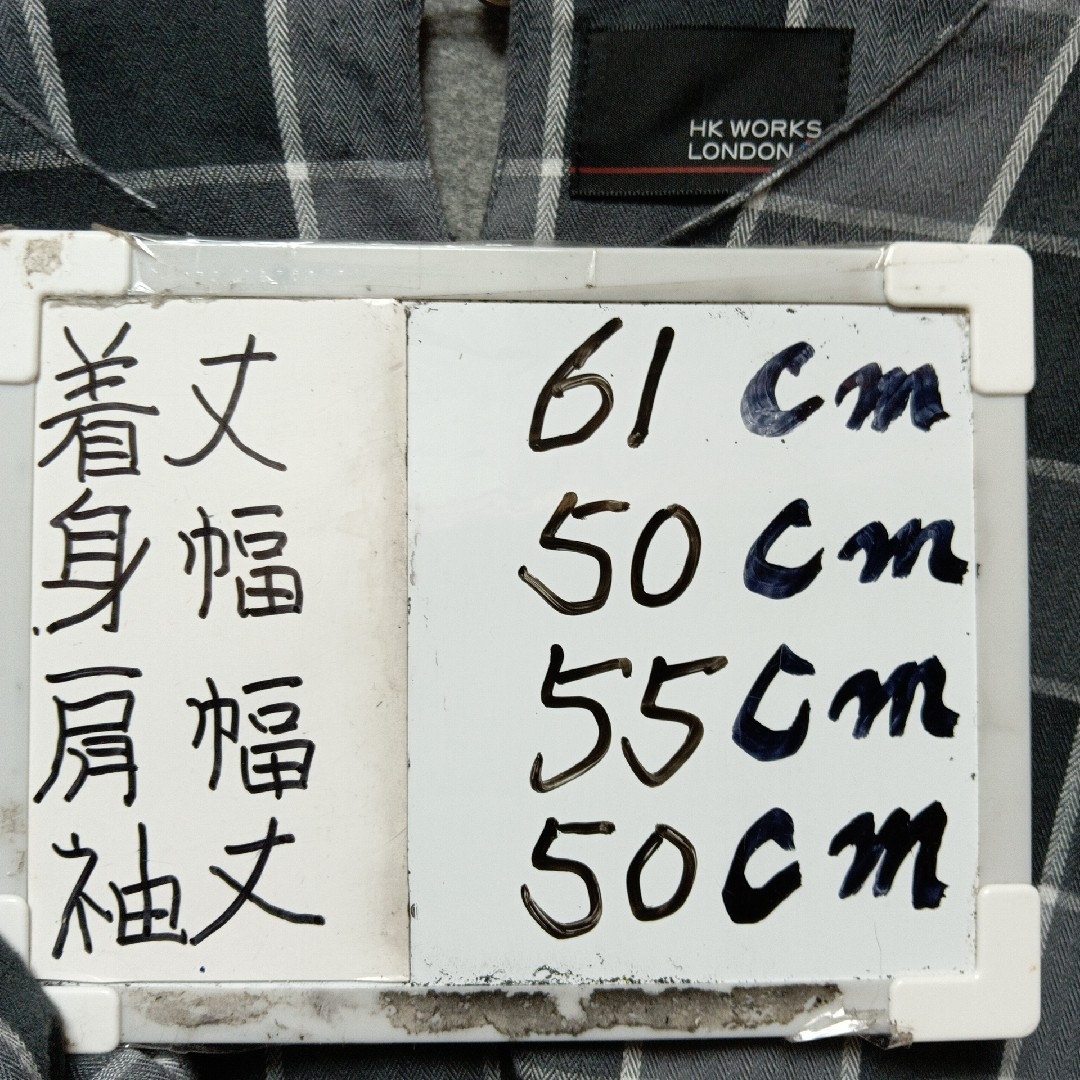 HK WORKS
LONDON
着丈 61 cm
身幅 50 cm
肩幅 55 cm
袖丈 50 cm